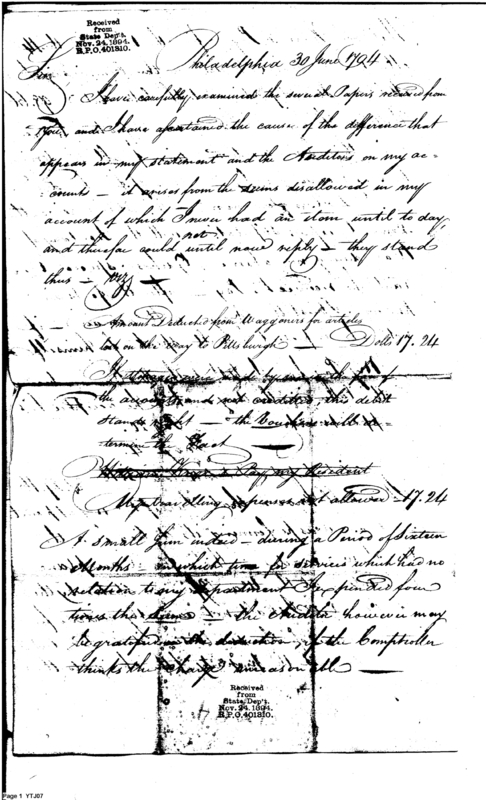 Received
from
State Dep't.
Nov. 24, 1894.
R.P.O. 401310.
Philadelphia 30 June 1794
Sir
I have carefully examined the several Papers received from
you, and I have ascertained the cause of the difference that
appears in my statement and the Auditors on my ac=
counts – it arises from the sums disallowed in my
account of which I never had an item until to day,
and therefore could not until now reply – they stand
thus – Viz
Amount Deducted from Waggoners for articles
lost on the way to Pittsburgh – Dolls 17.24
If by me
the accounts and not credited this debit
stands right – the Vouchers will de=
termine the Fact
my President
My travelling expenses not allowed – 17.24
A small Sum indeed – during a Period of Sixteen
Months – in which time for services which had no
relation to my department I expended four
times the sum – the Auditor however may
be gratified in the deduction, if the Comptroller
thinks the charge unreasonable
Received
from
State Dep't.
Nov. 24, 1894.
R.P.O. 401310.
Page 1 YTJ07